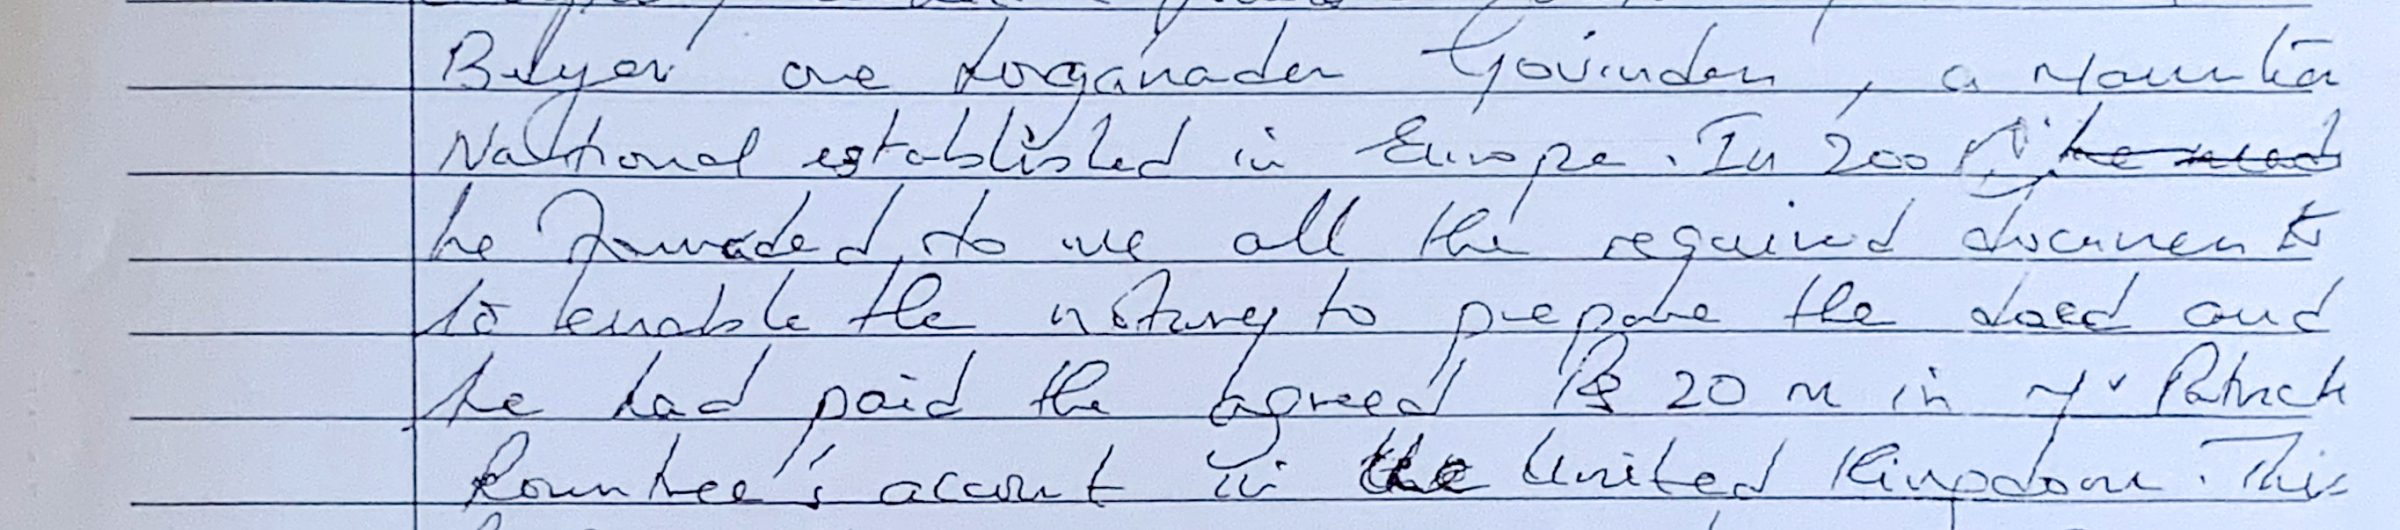 Buyer one Loganaden Govinden, a Mauritian
National established in Europe. In 200
he forwaded to me all the required documents
to enable the notary to prepare the deed and
he had paid the agreed Rs 20 M in Mr Patrick
Rountree's account in the United Kingdom. This